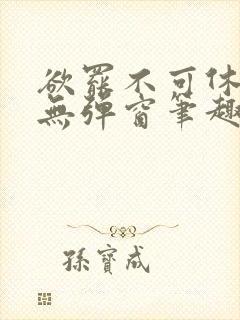 欲罷不可休
無彈窗筆趣
孫寶成